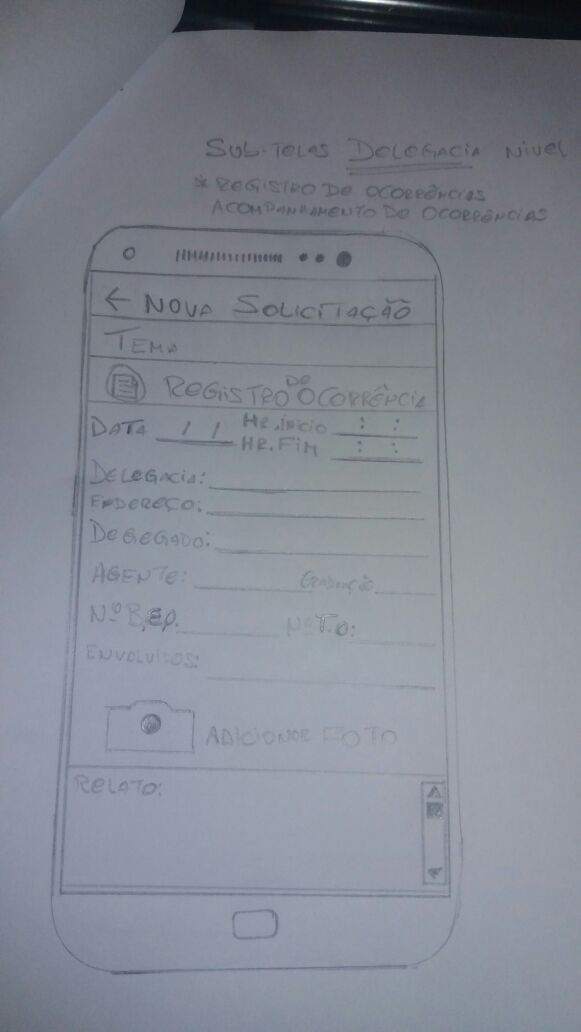 SUB-TELAS DELEGACIA NIVEL
* REGISTRO DE OCORRÊNCIAS
ACOMPANHAMENTO DE OCORRÊNCIAS
← NOVA SOLICITAÇÃO
TEMA
REGISTRO DE OCORRÊNCIA
DATA / / HR. INICIO : :
HR. FIM : :
DELEGACIA:
ENDEREÇO:
DEGEGADO:
AGENTE: GRADUAÇÃO
Nº B.E.P. Nº T.O:
ENVOLVIDOS:
ADICIONAR FOTO
RELATO: